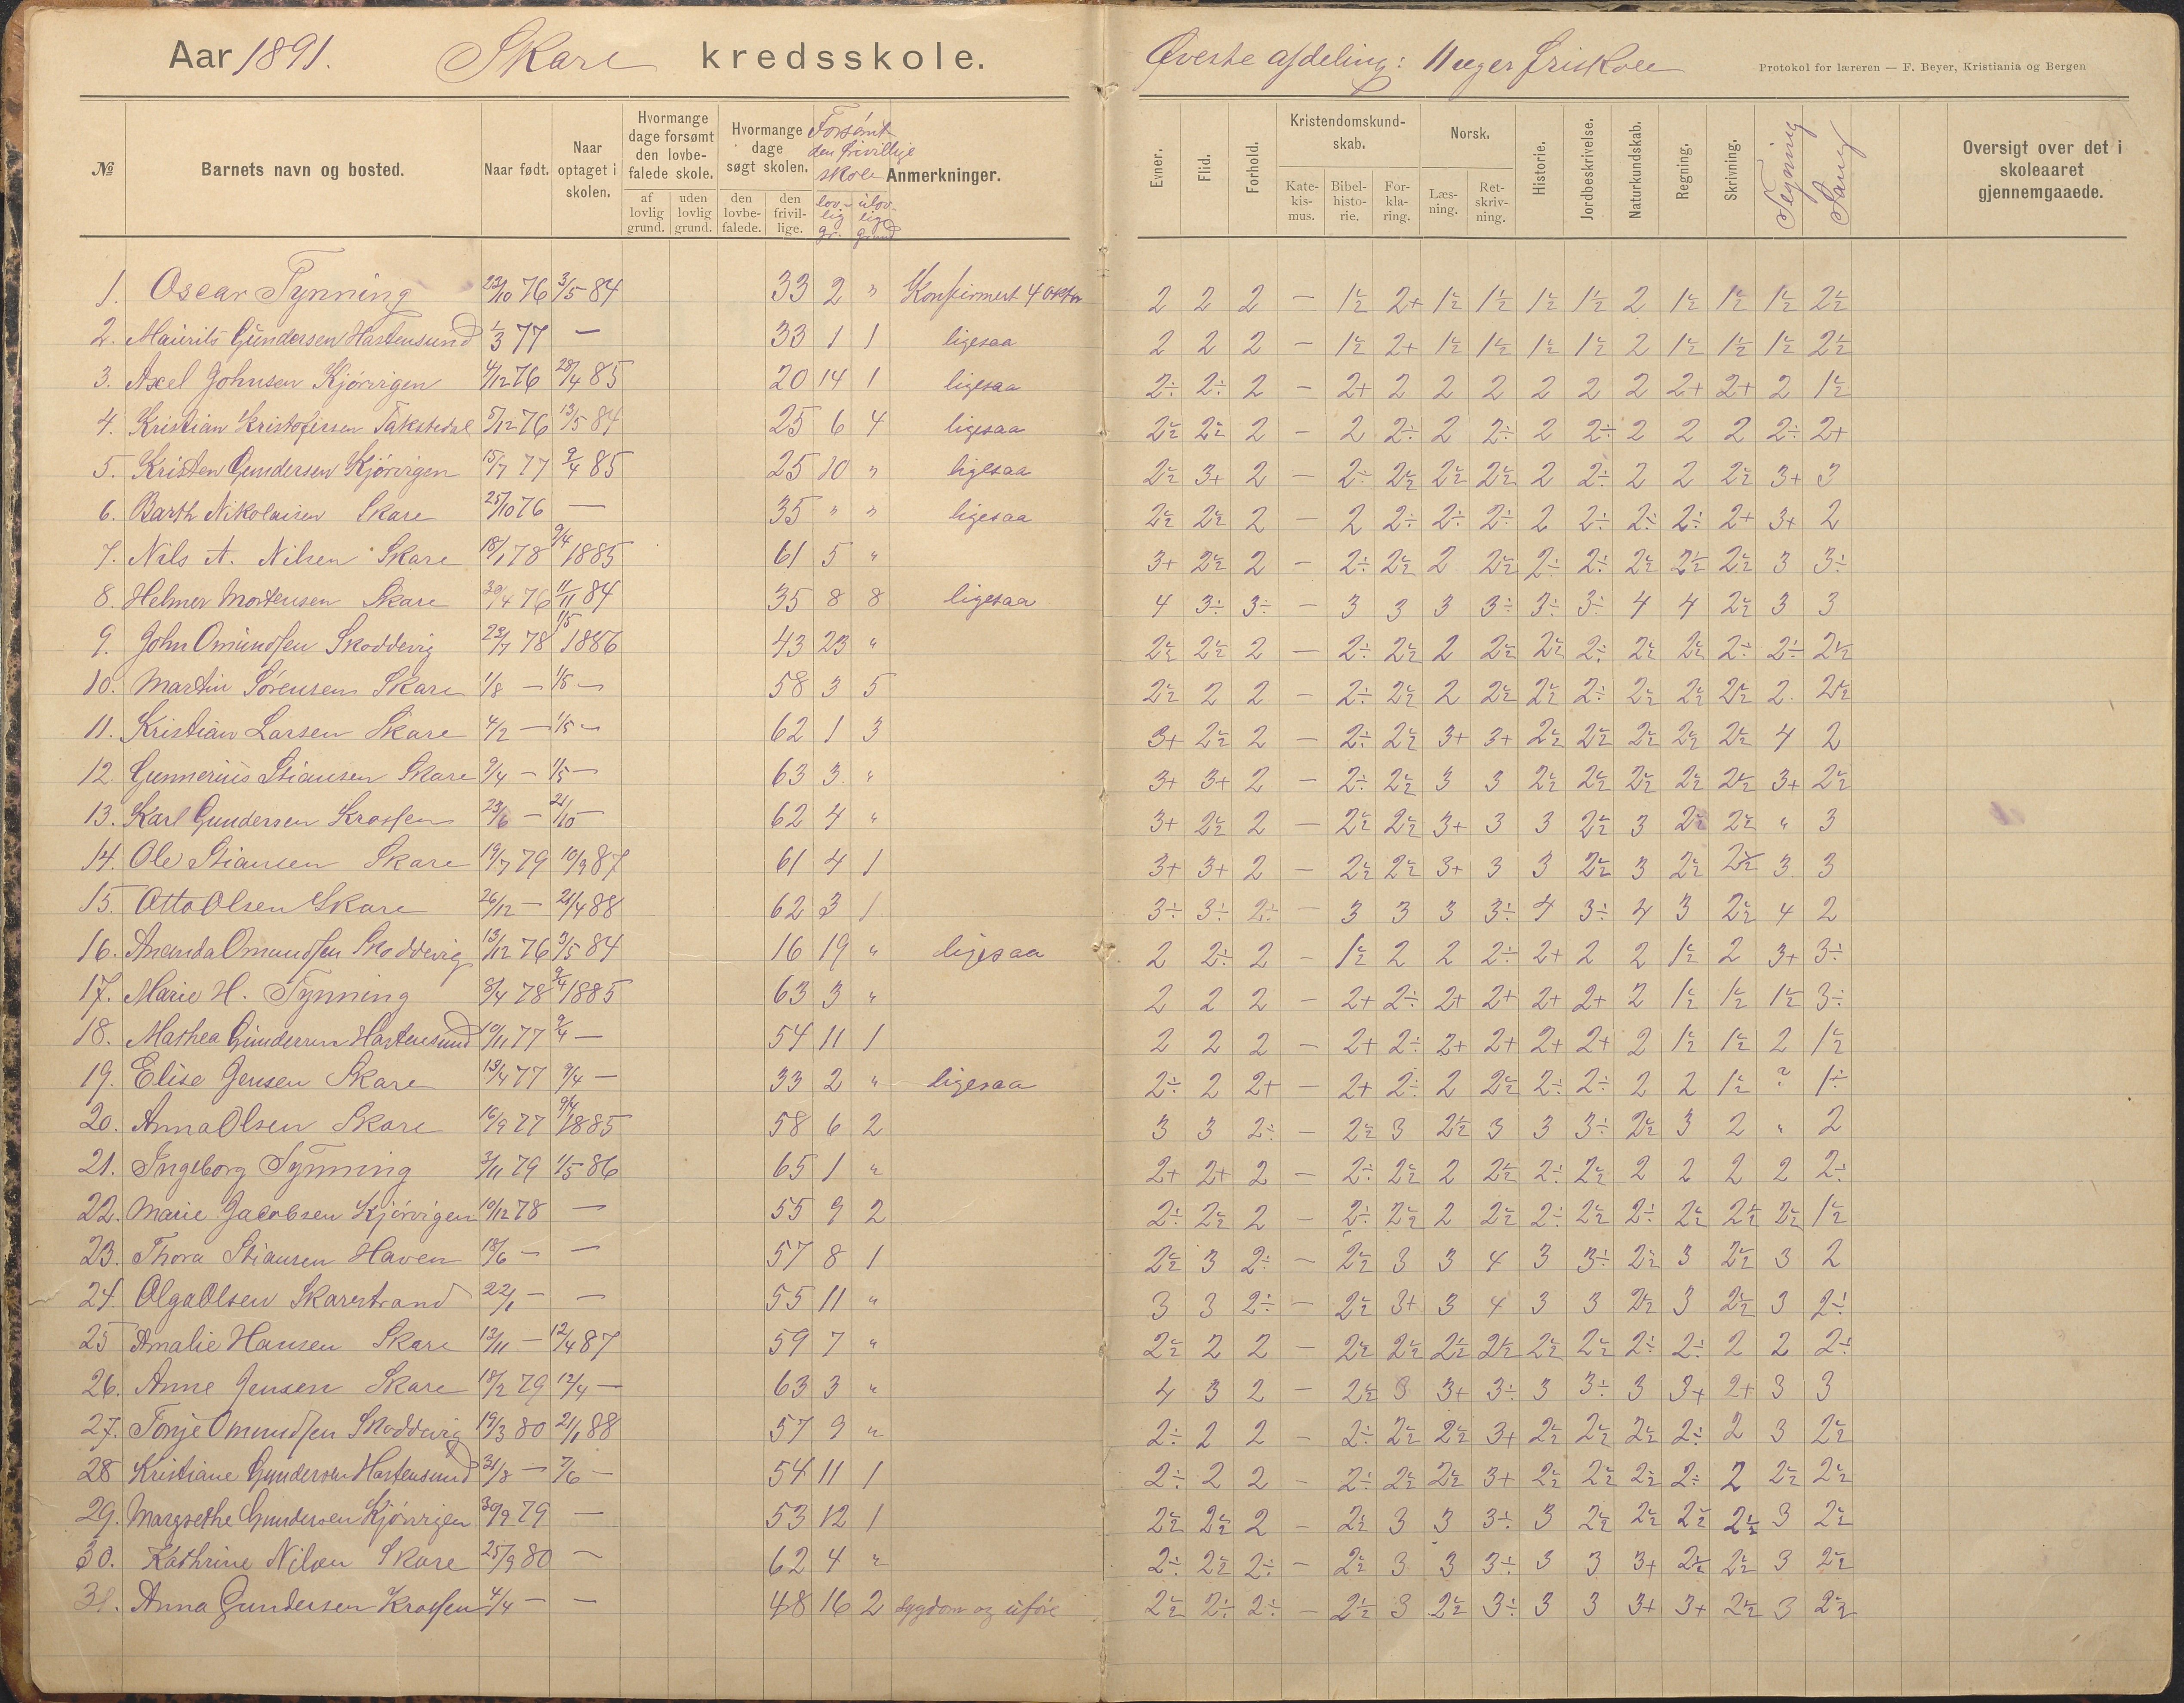 Aar 1891. Skare kredsskole.
№ Barnets navn og bosted. Naar født. Naar optaget i skolen. Hvormange dage forsømt den lovbefalede skole. af lovlig grund. uden lovlig grund. Hvormange dage søgt skolen. den lovbefalede. den frivillige. Forsømt den frivillige skole lovlig gr. ulovlig grund Anmerkninger.
1. Oscar Tynning 23/10 76 3/5 84 33 2 " Konfirmert 4 oktbr
2. Mauritz Gundersen Hastensund 1/3 77 — 33 1 1 ligesaa
3. Axel Johnsen Kjørvigen 4/12 76 28/4 85 20 14 1 ligesaa
4. Kristian Kristofersen Takstedal 5/12 76 13/5 84 25 6 4 ligesaa
5. Kristen Gundersen Kjørvigen 15/7 77 9/4 85 25 10 " ligesaa
6. Barth Nikolaisen Skare 25/10 76 — 35 " " ligesaa
7. Nils A. Nilsen Skare 18/1 78 9/4 1885 61 5 "
8. Helmer Mortensen Skare 30/4 76 11/11 84 35 8 8 ligesaa
9. John Omundsen Skoddevig 22/7 78 1/5 1886 43 23 "
10. Martin Sørensen Skare 1/8 — 1/5 — 58 3 5
11. Kristian Larsen Skare 4/2 — 1/5 — 62 1 3
12. Gunnerius Stiansen Skare 9/4 — 1/5 — 63 3 "
13. Karl Gundersen Krossen 23/6 — 21/10 — 62 4 "
14. Ole Stiansen Skare 19/7 79 10/9 87 61 4 1
15. Otto Olsen Skare 26/12 — 21/4 88 62 3 1
16. Ananda Omundsen Skoddevig 13/12 76 3/5 84 16 19 " ligesaa
17. Marie H. Tynning 8/4 78 9/4 1885 63 3 "
18. Mathea Gundersen Hastensund 10/11 77 9/4 — 54 11 1
19. Elise Jensen Skare 13/4 77 9/4 — 33 2 " ligesaa
20. Anna Olsen Skare 16/9 77 9/4 1885 58 6 2
21. Ingeborg Tynning 3/11 79 1/5 86 65 1 "
22. Marie Jacobsen Kjørvigen 10/12 78 — 55 9 2
23. Thora Stiansen Haven 18/6 — — 57 8 1
24. Olga Olsen Skarestrand 22/1 — — 55 11 "
25 Amalie Hansen Skare 13/11 — 12/4 87 59 7 "
26. Anne Jensen Skare 18/2 79 12/4 — 63 3 "
27. Tonje Omundsen Skoddevig 19/3 80 21/1 88 57 9 "
28 Kristiane Gundersen Hastensund 31/8 — 7/6 — 54 11 1
29. Margrethe Gundersen Kjørvigen 30/9 79 — 53 12 1
30. Kathrine Nilsen Skare 25/9 80 — 62 4 "
31. Anna Gundersen Krossen 4/4 — — 48 16 2 Sygdom og uføre
Øverste afdeling: 11 uger friskole
Protokol for læreren — F. Beyer, Kristiania og Bergen
Evner. Flid. Forhold. Kristendomskundskab. Katekismus. Bibelhistorie. Forklaring. Norsk. Læsning. Retskrivning. Historie. Jordbeskrivelse. Naturkundskab. Regning. Skrivning. Tegning Sang Oversigt over det i skoleaaret gjennemgaaede.
2 2 2 — 1½ 2+ 1½ 1½ 1½ 1½ 2 1½ 1½ 1½ 2½
2 2 2 — 1½ 2+ 1½ 1½ 1½ 1½ 2 1½ 1½ 1½ 2½
2÷ 2÷ 2 — 2+ 2 2 2 2 2 2 2+ 2+ 2 1½
2½ 2½ 2 — 2 2÷ 2 2÷ 2 2÷ 2 2 2 2÷ 2+
2½ 3+ 2 — 2÷ 2½ 2½ 2½ 2 2÷ 2 2 2½ 3+ 3
2½ 2½ 2 — 2 2÷ 2÷ 2÷ 2 2÷ 2÷ 2÷ 2+ 3+ 2
3+ 2½ 2 — 2÷ 2½ 2 2½ 2÷ 2÷ 2½ 2½ 2½ 3 3÷
4 3÷ 3÷ — 3 3 3 3÷ 3÷ 3÷ 4 4 2½ 3 3
2½ 2½ 2 — 2÷ 2½ 2 2½ 2½ 2÷ 2½ 2½ 2÷ 2÷ 2½
2½ 2 2 — 2÷ 2½ 2 2½ 2½ 2÷ 2½ 2½ 2½ 2 2½
3+ 2½ 2 — 2÷ 2½ 3+ 3+ 2½ 2½ 2½ 2½ 2½ 4 2
3+ 3+ 2 — 2÷ 2½ 3 3 2½ 2½ 2½ 2½ 2½ 3+ 2½
3+ 2½ 2 — 2½ 2½ 3+ 3 3 2½ 3 2½ 2½ " 3
3+ 3+ 2 — 2½ 2½ 3+ 3 3 2½ 3 2½ 2½ 3 3
3÷ 3÷ 2÷ — 3 3 3 3÷ 4 3÷ 4 3 2½ 4 2
2 2÷ 2 — 1½ 2 2 2÷ 2+ 2 2 1½ 2 3+ 3÷
2 2 2 — 2+ 2÷ 2+ 2+ 2+ 2+ 2 1½ 1½ 1½ 3÷
2 2 2 — 2+ 2÷ 2+ 2+ 2+ 2+ 2 1½ 1½ 2 1½
2÷ 2 2+ — 2+ 2÷ 2 2½ 2÷ 2÷ 2 2 1½ ? 1÷
3 3 2÷ — 2½ 3 2½ 3 3 3÷ 2½ 3 2 " 2
2+ 2+ 2 — 2÷ 2½ 2 2½ 2÷ 2½ 2 2 2 2 2÷
2÷ 2½ 2 — 2÷ 2½ 2 2½ 2÷ 2½ 2÷ 2½ 2½ 2½ 1½
2½ 3 2÷ — 2½ 3 3 4 3 3÷ 2½ 3 2½ 3 2
3 3 2÷ — 2½ 3+ 3 4 3 3 2½ 3 2½ 3 2÷
2½ 2 2 — 2½ 2½ 2½ 2½ 2½ 2½ 2÷ 2÷ 2 2 2÷
4 3 2 — 2½ 3 3+ 3÷ 3 3÷ 3 3+ 2+ 3 3
2÷ 2 2 — 2÷ 2½ 2½ 3+ 2½ 2½ 2½ 2÷ 2 3 2½
2÷ 2 2 — 2÷ 2½ 2½ 3+ 2½ 2½ 2½ 2÷ 2 2½ 2½
2½ 2½ 2 — 2½ 3 3 3÷ 3 2½ 2½ 2½ 2½ 3 2½
2÷ 2½ 2÷ — 2½ 3 3 3÷ 3 3 3+ 2½ 2½ 3 2½
2½ 2÷ 2÷ — 2½ 3 2½ 3÷ 3 3 3+ 3+ 2½ 3 2½